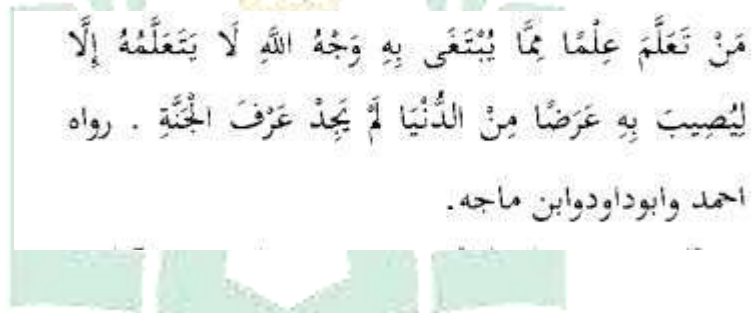 مَنْ تَعَلَّمَ عِلْمًا مِمَّا يُبْتَغَى بِهِ وَجْهُ اللَّهِ لَا يَتَعَلَّمُهُ إِلَّا
لِيُصِيبَ بِهِ عَرَضًا مِنْ الدُّنْيَا لَمْ يَجِدْ عَرْفَ الْجَنَّةِ . رواه
احمد وابوداودوابن ماجه.